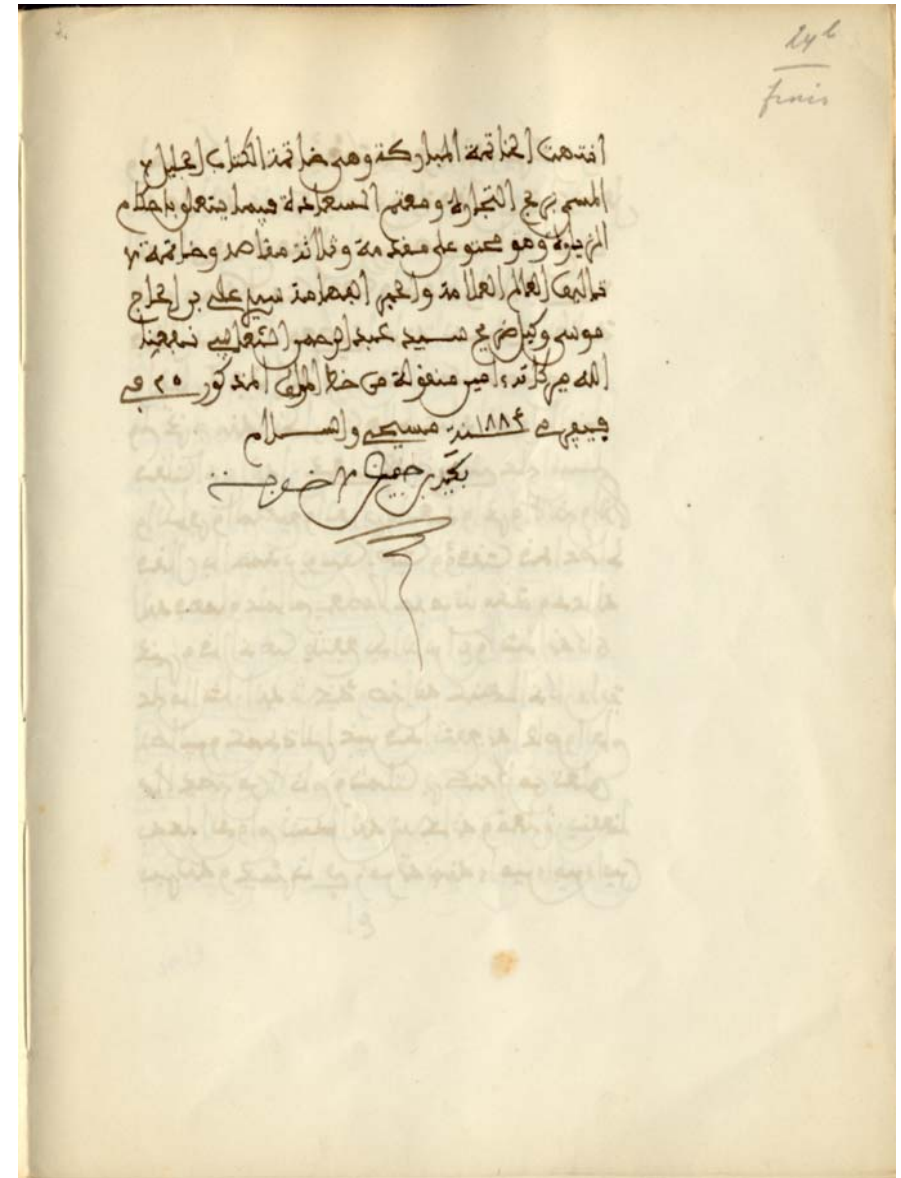 24b
finis
انتهت الخاتمة المباركة وهي خاتمة الكتاب الجليل
المسمى بربح التجارة ومغنم السعادة فيما يتعلق باحكام
الزيارة وهو محتو على مقدمة وثلاثة مقاصد وخاتمة
تاليف العالم العلامة والحبر الفهامة سيدي علي بن الحاج
موسى وكيل ضريح سيد عبد الرحمن الثعالبي نفعنا
الله ببركاته ءامين منقولة من خط المؤلف المذكور ٢٥ في
فييفري ١٨٨٤ سنة مسيحي والسلام
بن خوجة